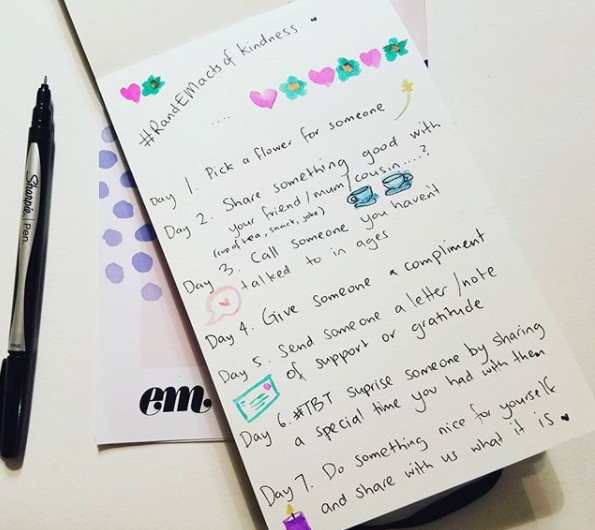 #RandEMacts of kindness
....
Day 1. Pick a flower for someone
Day 2. Share something good with
your friend/mum/cousin....?
(cup of tea, snack, joke)
Day 3. Call someone you haven't
talked to in ages
Day 4. Give someone a compliment
Day 5. Send someone a letter/note
of support or gratitude
Day 6. #TBT suprise someone by sharing
a special time you had with them
Day 7. Do something nice for yourself
and share with us what it is
Sharpie | Pen
em.